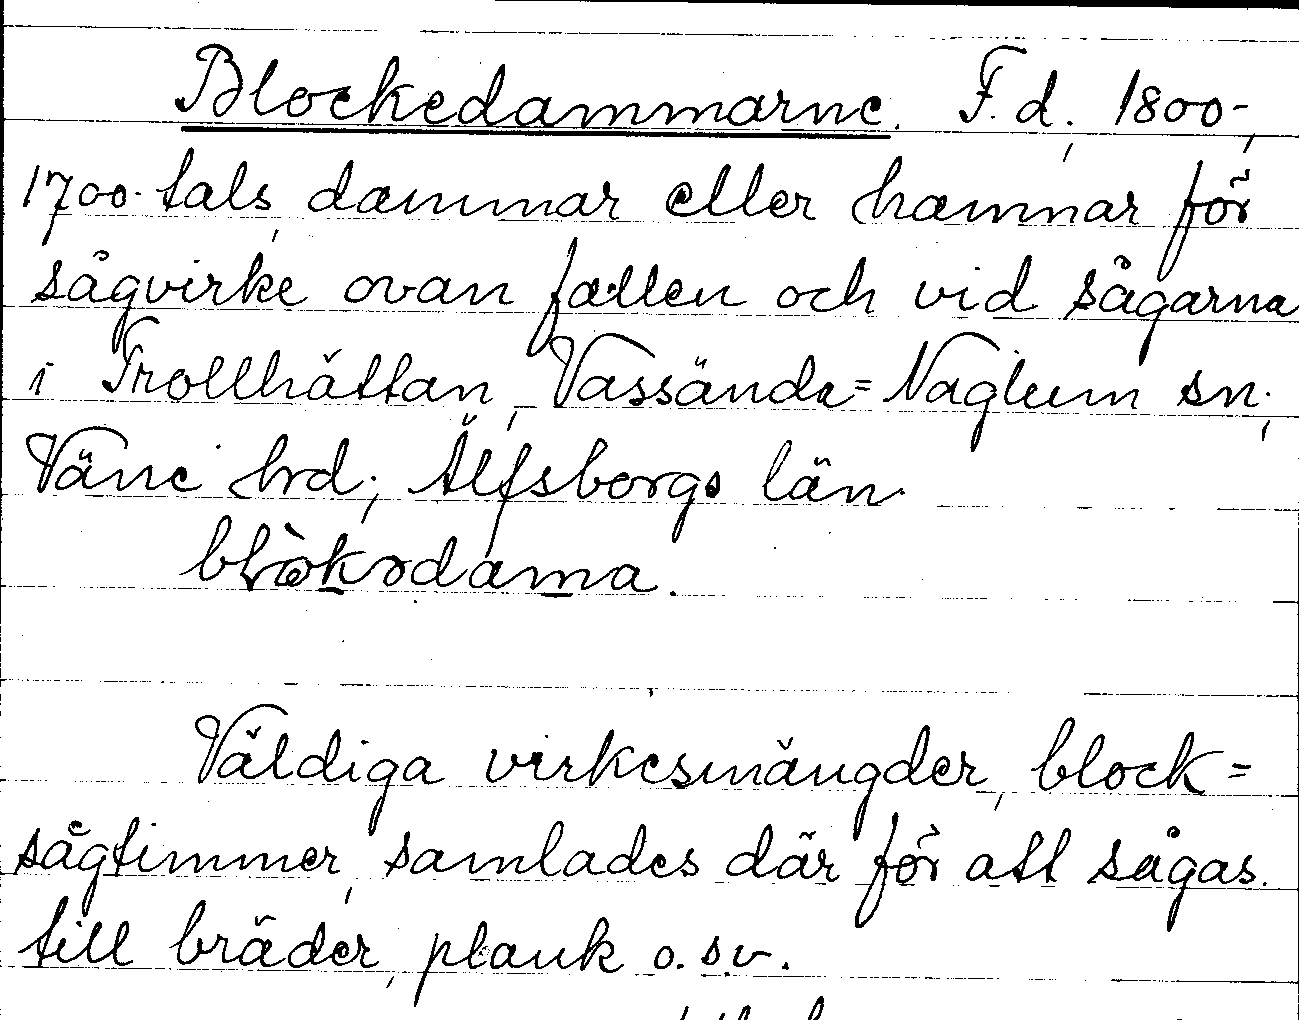 Blockedammarne. F.d. 1800-,
1700-tals, dammar eller hamnar för
sågvirke ovan fallen och vid sågarna
i Trollhättan, Vassända=Naglum sn;
Väne hrd; Älfsborgs län.
Väldiga virkesmängder, block=
sågtimmer, samlades där för att sågas
till bräder, plank o.s.v.